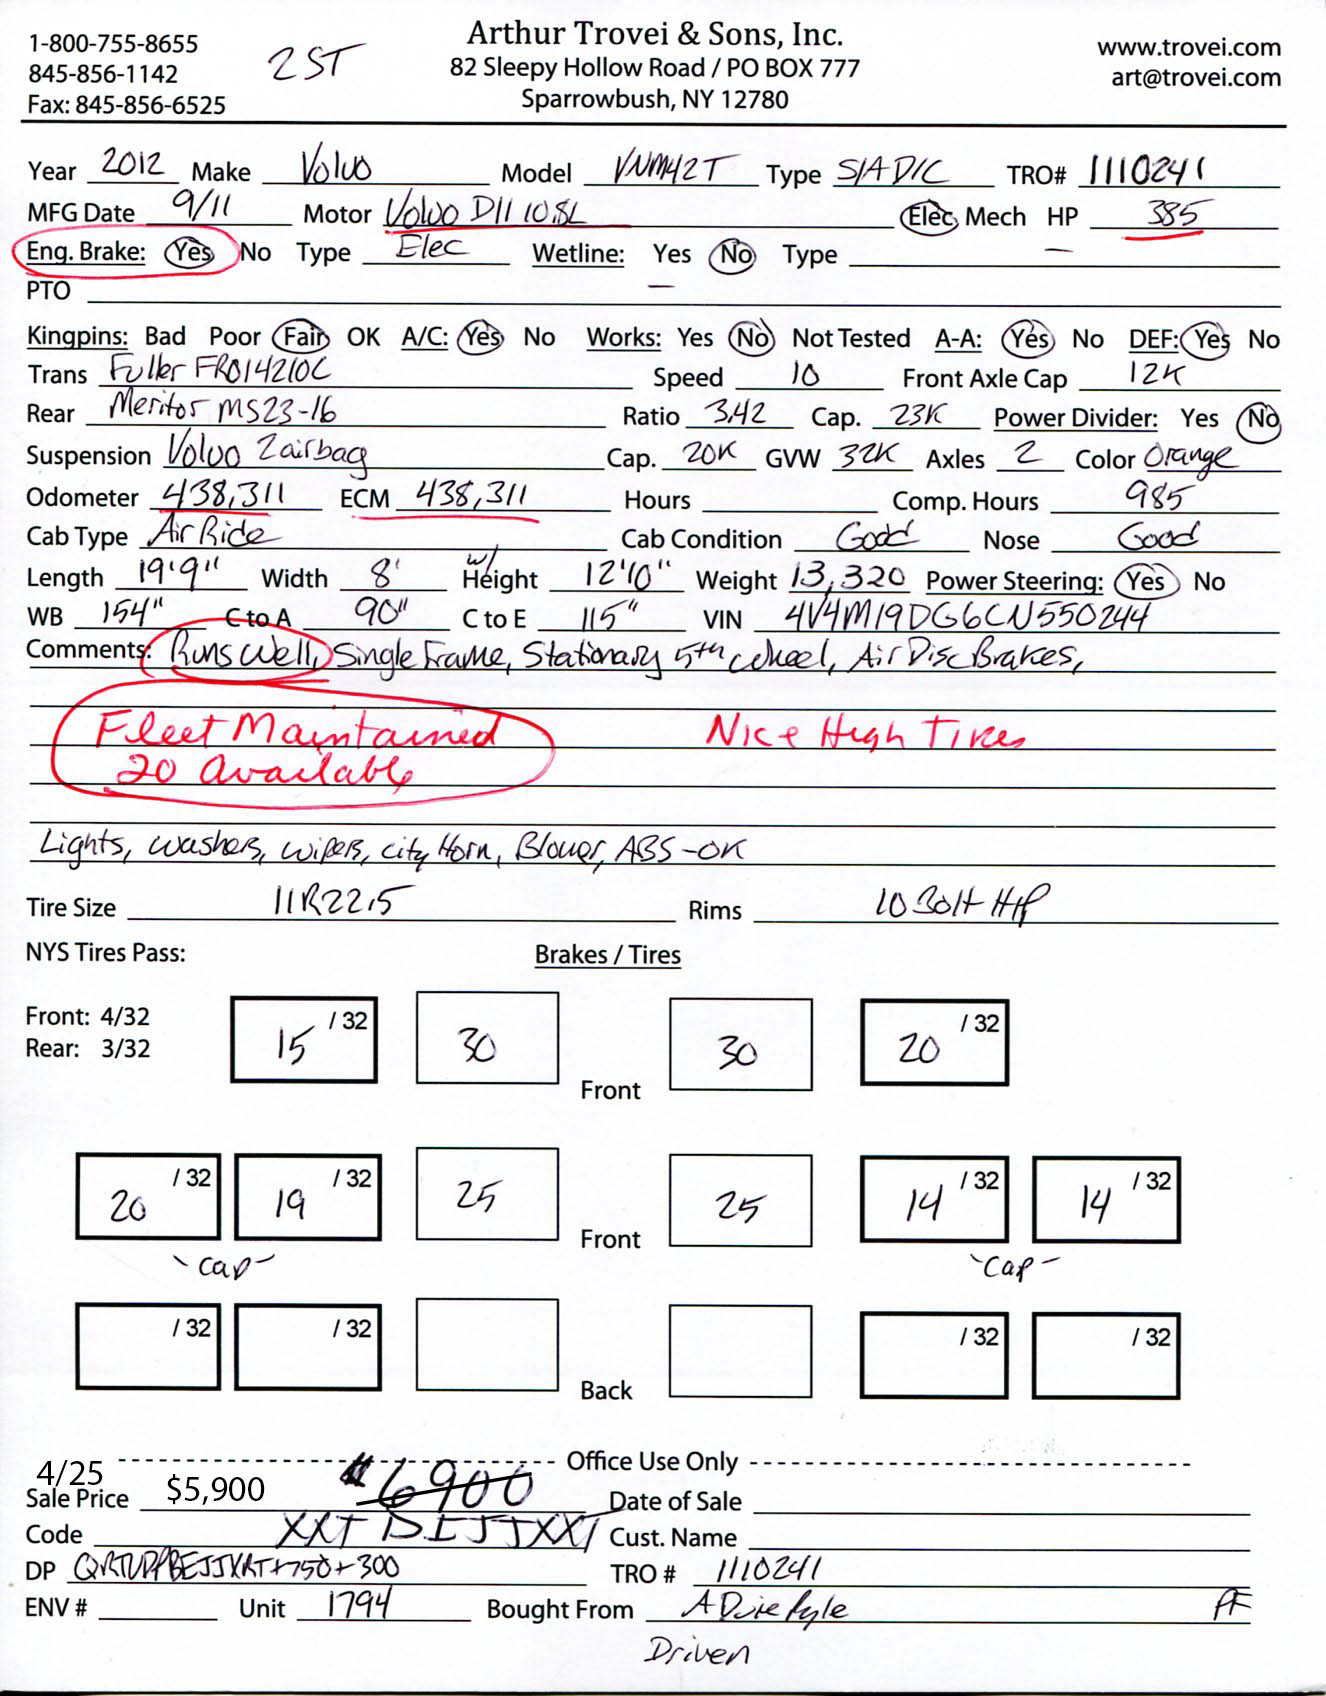 1-800-755-8655
845-856-1142
Fax: 845-856-6525
2ST
Arthur Trovei & Sons, Inc.
82 Sleepy Hollow Road / PO BOX 777
Sparrowbush, NY 12780
www.trovei.com
art@trovei.com
Year 2012 Make Volvo Model VNM42T Type S/A D/C TRO# 1110241
MFG Date 9/11 Motor Volvo D11 10.8L Elec Mech HP 385
Eng. Brake: Yes No Type Elec Wetline: Yes No Type —
PTO —
Kingpins: Bad Poor Fair OK A/C: Yes No Works: Yes No Not Tested A-A: Yes No DEF: Yes No
Trans Fuller FRO14210C Speed 10 Front Axle Cap 12K
Rear Meritor MS23-16 Ratio 3.42 Cap. 23K Power Divider: Yes No
Suspension Volvo 2airbag Cap. 20K GVW 32K Axles 2 Color Orange
Odometer 438,311 ECM 438,311 Hours Comp. Hours 985
Cab Type Air Ride Cab Condition Good Nose Good
Length 19'9" Width 8' w/ Height 12'10" Weight 13,320 Power Steering: Yes No
WB 154" C to A 90" C to E 115" VIN 4V4M19DG6CN550244
Comments: Runs Well, Single Frame, Stationary 5th wheel, Air Disc Brakes,
Fleet Maintained Nice High Tires
20 Available
Lights, washers, wipers, city Horn, Blower, ABS-OK
Tire Size 11R22.5 Rims 10 Bolt HP
NYS Tires Pass: Brakes / Tires
Front: 4/32
Rear: 3/32
15 /32 30 Front 30 20 /32
20 /32 19 /32 25 Front 25 14 /32 14 /32
-Cap- -Cap-
/32 /32 Back /32 /32
Office Use Only
4/25
Sale Price $5,900 $6900 Date of Sale
Code Cust. Name
DP +750+300 TRO # 1110241
ENV # Unit 1794 Bought From A Duie Pyle PF
Driven